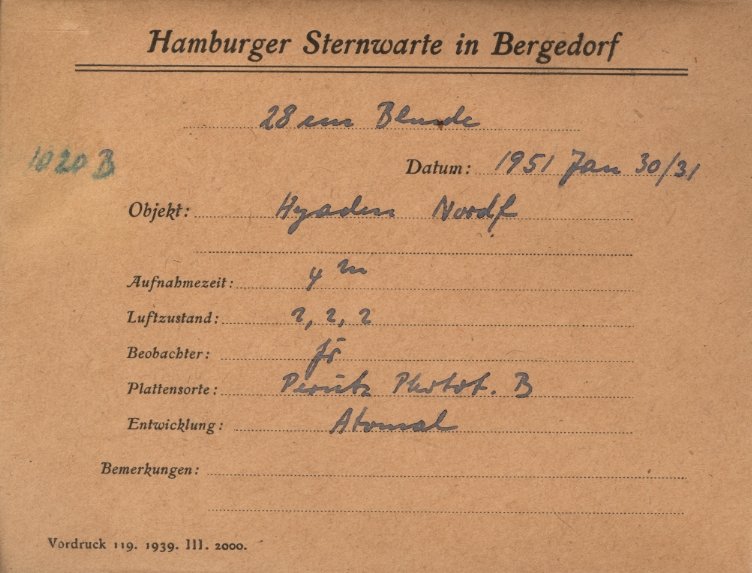 Hamburger Sternwarte in Bergedorf
28 cm Blende
1020 B
Datum: 1951 Jan 30/31
Objekt: Hyaden Nordf
Aufnahmezeit: 4 m
Luftzustand: 2, 2, 2
Beobachter:
Plattensorte: Perutz Photot. B
Entwicklung: Atomal
Bemerkungen:
Vordruck 119. 1939. III. 2000.